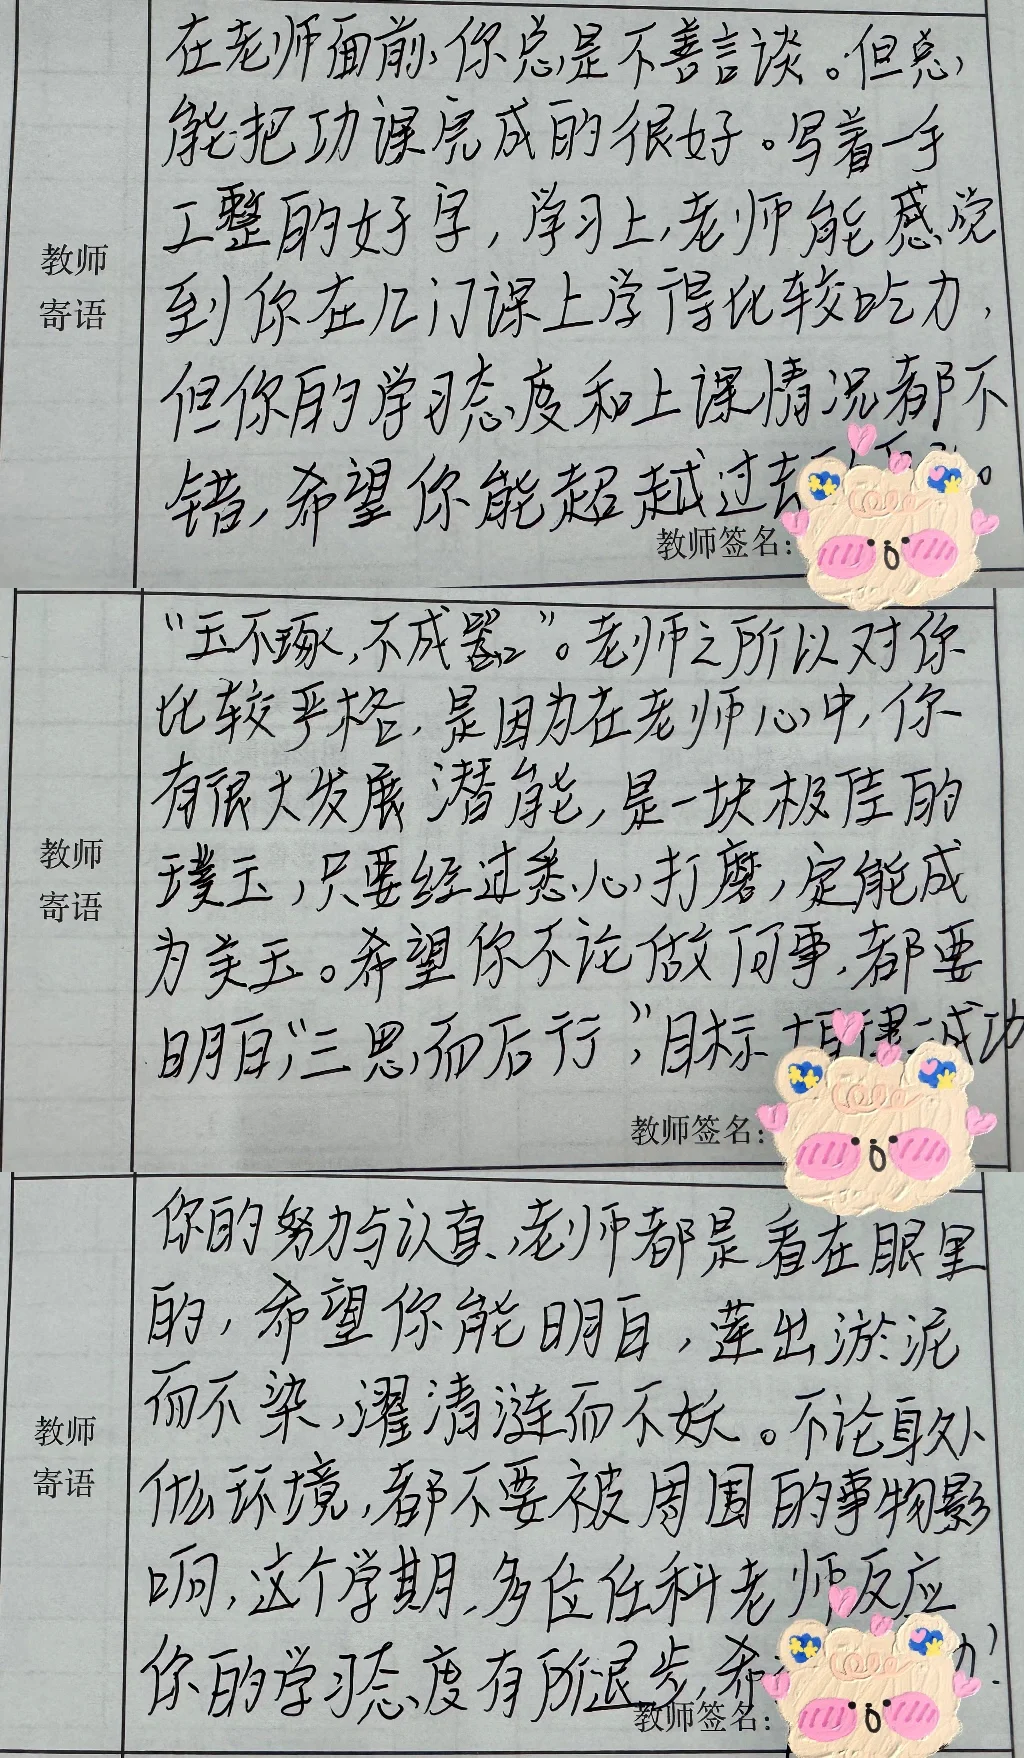 在老师面前,你总是不善言谈。但总
能把功课完成的很好。写着一手
工整的好字,学习上,老师能感觉
教师
寄语
到你在几门课上学得比较吃力,
但你的学习态度和上课情况都不
错,希望你能超越过去
教师签名:
“玉不琢,不成器”。老师之所以对你
比较严格,是因为在老师心中,你
有很大发展潜能,是一块极佳的
教师
寄语
璞玉,只要经过悉心打磨,定能成
为美玉。希望你不论做何事,都要
明白“三思而后行”,目标 成功
教师签名:
你的努力与认真,老师都是看在眼里
的,希望你能明白,莲出淤泥
而不染,濯清涟而不妖。不论身处
教师
寄语
什么环境,都不要被周围的事物影
响,这个学期,多位任科老师反应
你的学习态度有所退步,希
教师签名: